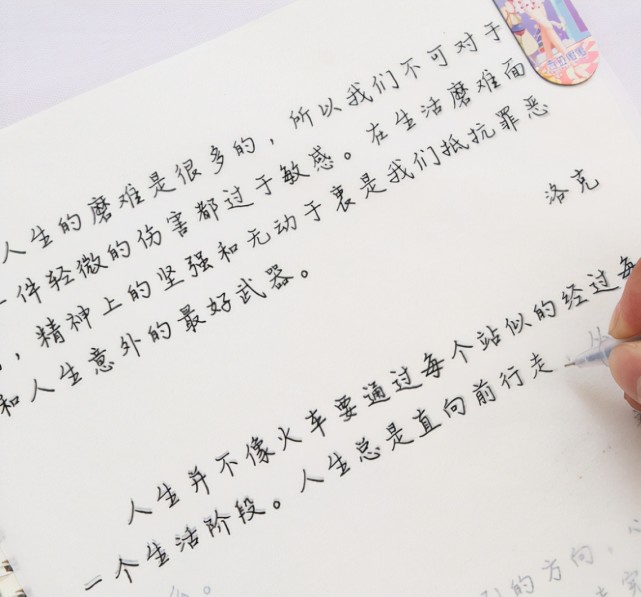 人生的磨难是很多的，所以我们不可对于
件轻微的伤害都过于敏感。在生活磨难面
，精神上的坚强和无动于衷是我们抵抗罪恶
和人生意外的最好武器。
洛克
人生并不像火车要通过每个站似的经过每
一个生活阶段。人生总是直向前行走
的方向，